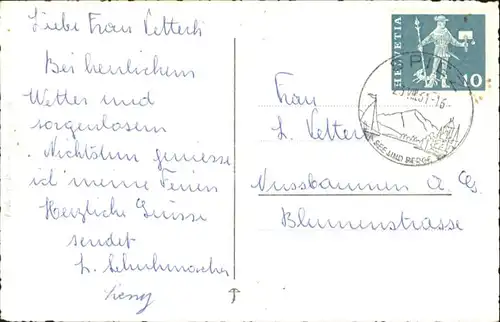 Liebe Frau Vetterli
Bei herrlichem
Wetter und
sorgenlosem
Nichtstun geniesse
ich meine Ferien
Herzliche Grüsse
sendet
H. Schuhmacher
HELVETIA
10
SPIEZ
61-16
SEE UND BERGE
Frau
L. Vetterli
Nussbaumen
Blumenstrasse